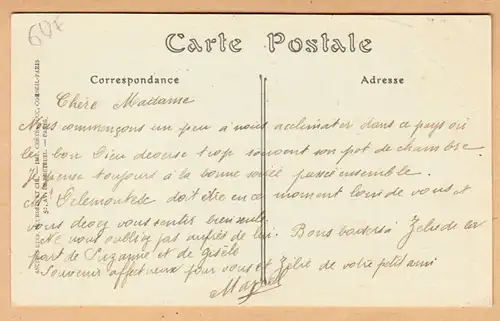 607
Carte Postale
Correspondance
Adresse
Chère Madame
Nous commençons un peu à nous acclimater dans ce pays où
le bon Dieu deverse trop souvent son pot de chambre
Je pense toujours à la bonne soirée passée ensemble.
Mr doit être en ce moment loin de vous et
vous devez vous sentir bien seule
Ne nous oubliez pas auprès de lui. Bons baisers à Zélie de la
part de Suzanne et de Gisèle
Souvenir affectueux pour vous et Zélie de votre petit ami